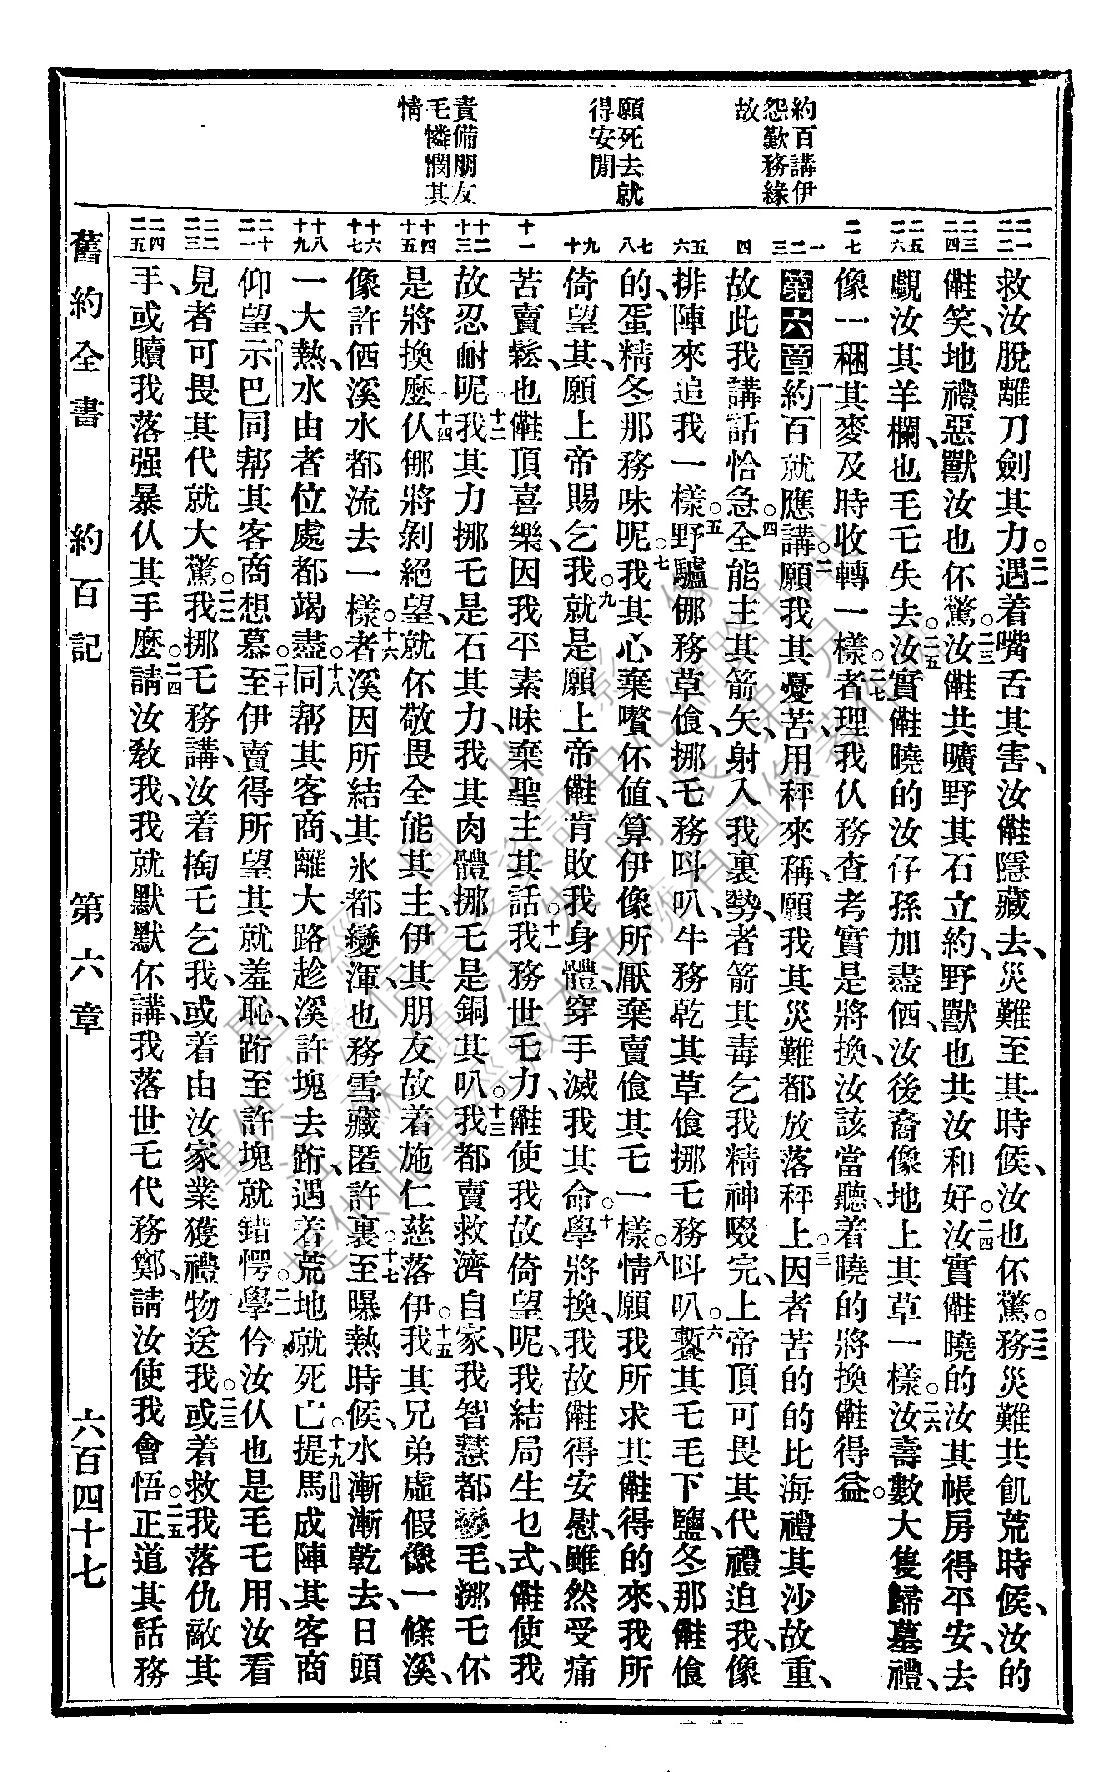 約百講伊
怨歎務緣
故
願死去就
得安閒
責備朋友
毛憐憫其
情
救汝脫離刀劍其力。二一遇着嘴舌其害、汝𣍐隱藏去、災難至其時候、汝也伓驚。二二務災難共飢荒時候、汝的
𣍐笑、地禮惡獸汝也伓驚。二三汝𣍐共曠野其石立約、野獸也共汝和好。二四汝實𣍐曉的汝其帳房得平安、去
覷汝其羊欄也毛乇失去。二五汝實𣍐曉的汝仔孫加盡価、汝後裔像地上其草一樣。二六汝壽數大隻歸墓禮、
像一稇其麥及時收轉一樣。二七者理我仈務查考實是將換、汝該當聽、着曉的將換𣍐得益。
第六章 約百就應講、二願我其憂苦用秤來稱、願我其災難都放落秤上。三因者苦的的比海禮其沙故重、
故此我講話恰急。四全能主其箭矢、射入我裏勢、者箭其毒乞我精神啜完、上帝頂可畏其代禮迫我、像
排陣來追我一樣。五野驢㑚務草飡、挪乇務呌叭、牛務乾其草飡挪乇務呌叭。六䭕其乇毛下鹽、冬那𣍐飡
的、蛋精冬那務味呢。七我其心棄嘐伓値、算伊像所厭棄賣飡其乇一樣。八情願我所求其𣍐得的來、我所
倚望其、願上帝賜乞我。九就是願上帝𣍐肯敗我身體、穿手滅我其命。十學將換、我故𣍐得安慰、雖然受痛
苦賣鬆、也𣍐頂喜樂、因我平素昧棄聖主其話。十一我務世乇力、𣍐使我故倚望呢、我結局生乜式、𣍐使我
故忍耐呢。十二我其力挪乇是石其力、我其肉體、挪乇是銅其叭。十三我都賣救濟自家、我智慧都變毛、挪乇伓
是將換麼。十四仈㑚將剝絕望、就伓敬畏全能其主、伊其朋友故着施仁慈落伊。十五我其兄弟虛假像一條溪、
像許価溪水都流去一樣。十六者溪因所結其氷都變渾、也務雪藏匿許裏。十七至曝熱時候、水漸漸乾去、日頭
一大熱、水由者位處都竭盡。十八同帮其客商、離大路趁溪許塊去跡、遇着荒地就死亡。十九提馬成陣其客商
仰望、示巴同帮其客商想慕。二十至伊賣得所望其就羞恥、跡至許塊就錯愕。二一學仱汝仈也是毛乇用、汝看
見者可畏其代就大驚。二二我挪乇務講、汝着掏乇乞我、或着由汝家業獲禮物送我。二三或着救我落仇敵其
手、或贖我落强暴仈其手麼。二四請汝敎我、我就默默伓講、我落世乇代務鄭、請汝使我會悟。二五正道其話務
舊約全書　約百記　第六章　六百四十七